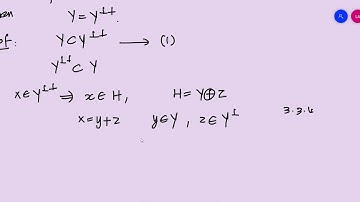 Y = Y⊥⊥.
of: Y ⊂ Y⊥⊥ ⟶ (1)
Y⊥⊥ ⊂ Y
x ∈ Y⊥⊥ ⟹ x ∈ H, H = Y ⊕ Z
x = y + z y ∈ Y, z ∈ Y⊥ 3.3.4
R